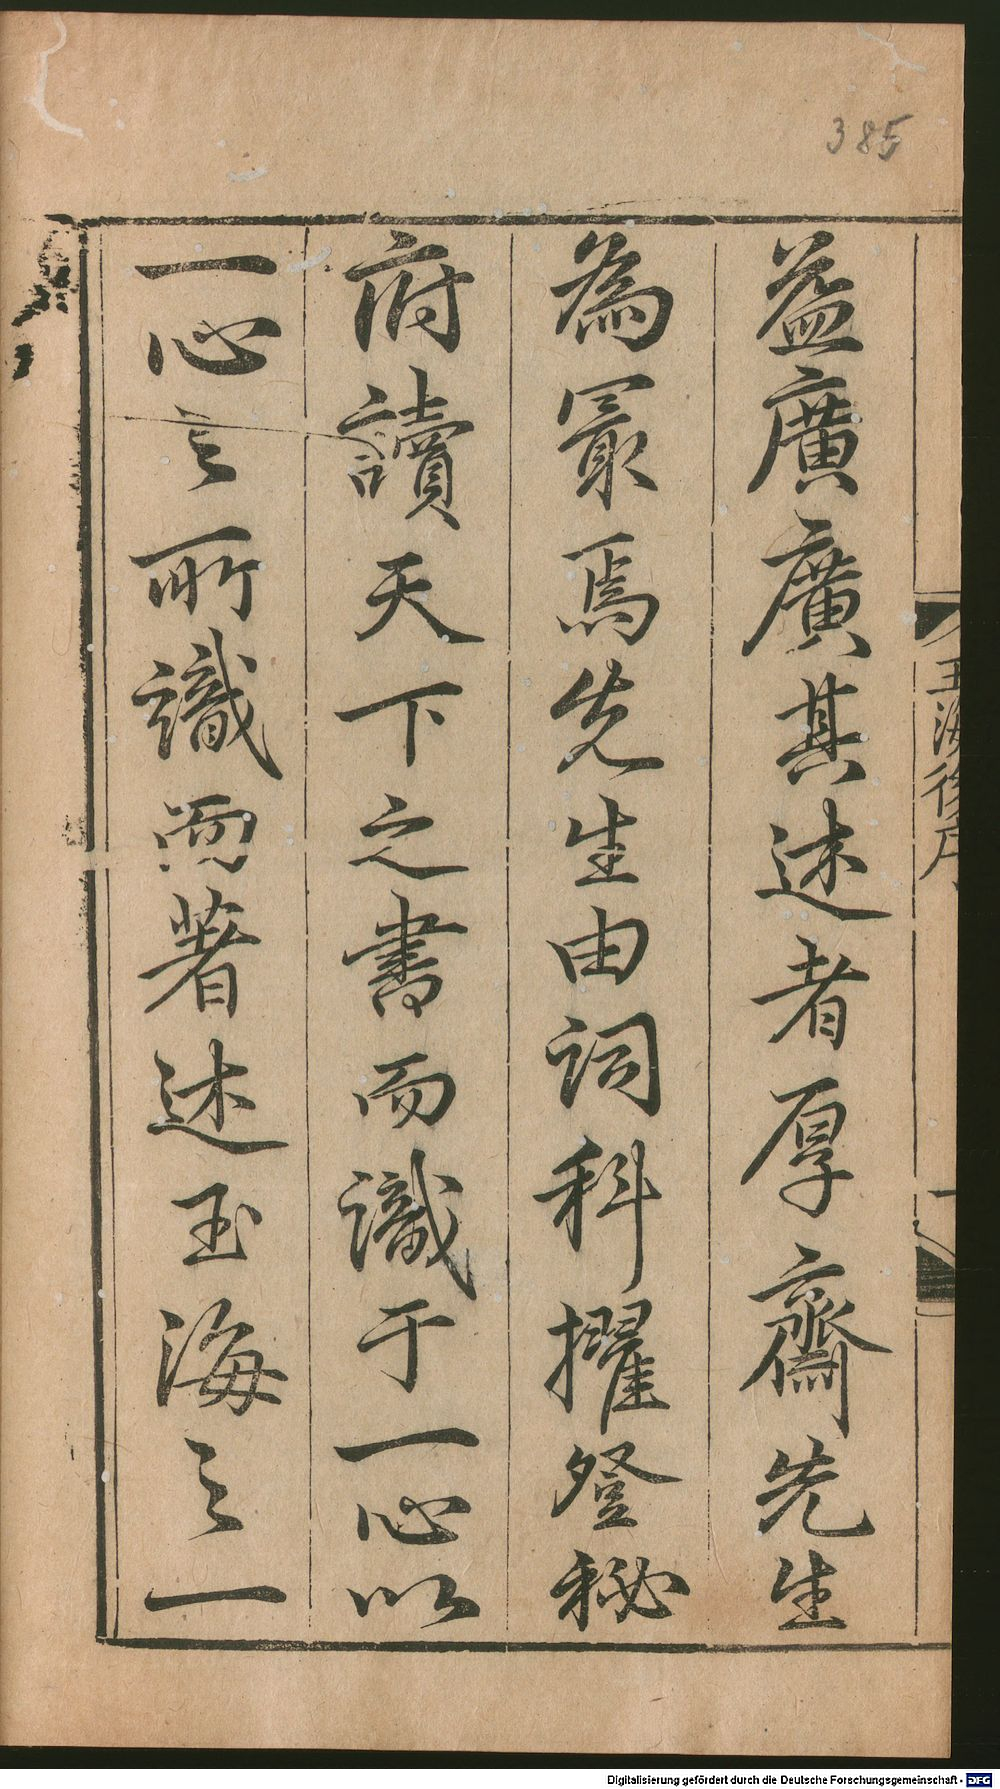 385
玉海後序
益廣廣其述者厚齋先生
為冣焉先生由詞科擢登秘
府讀天下之書而識于一心以
一心之所識而著述玉海之一
Digitalisierung gefördert durch die Deutsche Forschungsgemeinschaft - DFG